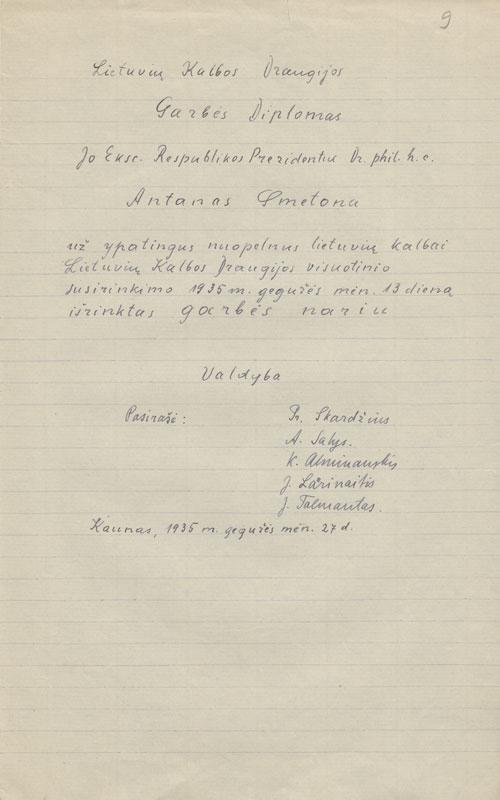 9
Lietuvių Kalbos Draugijos
Garbės Diplomas
Jo Eksc. Respublikos Prezidentui Dr. phil. h. c.
Antanas Smetona
už ypatingus nuopelnus lietuvių kalbai
Lietuvių Kalbos Draugijos visuotinio
susirinkimo 1935 m. gegužės mėn. 13 dieną
išrinktas garbės nariu
Valdyba
Pasirašė:
Pr. Skardžius
A. Salys.
K. Alminauskis
J. Talmantas.
Kaunas, 1935 m. gegužės mėn. 27 d.